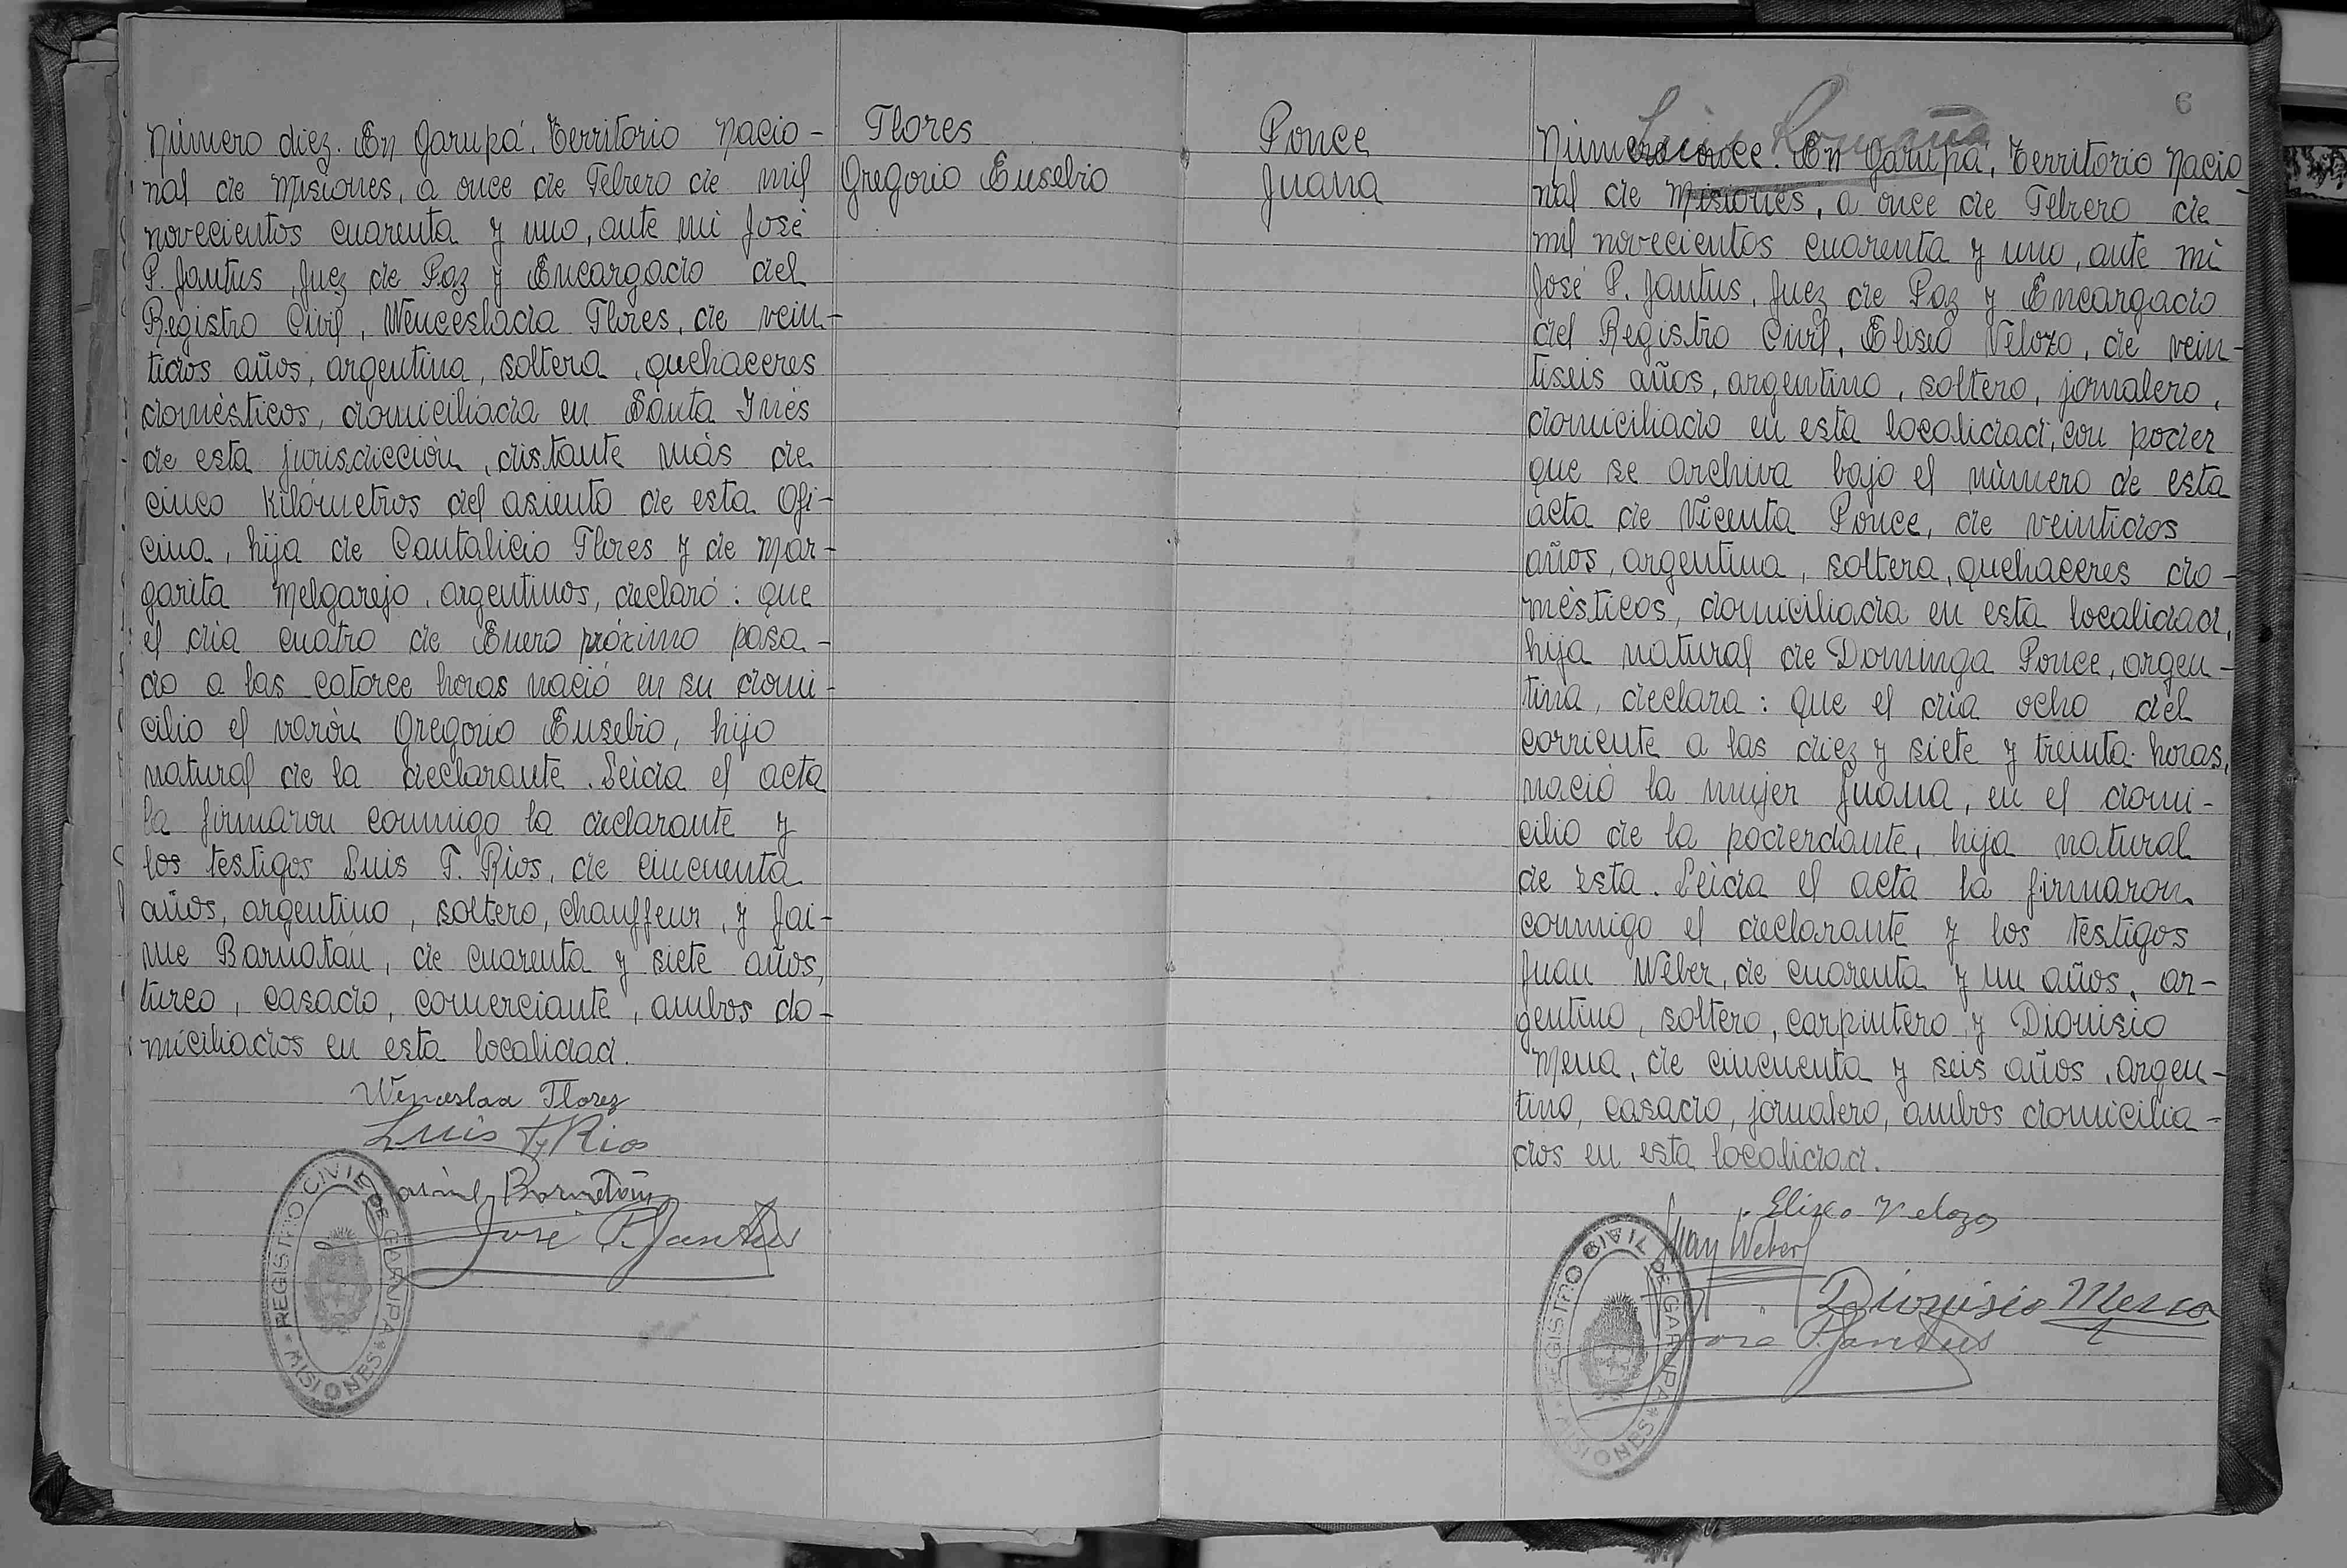 Número diez. En Garupá, Territorio Nacio-
nal de Misiones, a once de Febrero de mil
novecientos cuarenta y uno, ante mi José
P. Jantus, Juez de Paz y Encargado del
Registro Civil, Wenceslada Flores, de vein-
tidos años, argentina, soltera, quehaceres
domésticos, domiciliada en Santa Inés
de esta jurisdicción, distante más de
cinco kilómetros del asiento de esta Ofi-
cina, hija de Cantalicio Flores y de Mar-
garita Melgarejo, argentinos, declaró: que
el dia cuatro de Enero próximo pasa-
do a las catorce horas nació en su domi-
cilio el varón Gregorio Eusebio, hijo
natural de la declarante. Leida el acta
la firmaron conmigo la declarante y
los testigos Luis F. Rios, de cincuenta
años, argentino, soltero, chauffeur, y Jai-
me Barnatán, de cuarenta y siete años,
turco, casado, comerciante, ambos do-
miciliados en esta localidad.
Wenceslaa Florez
Luis F. Rios
Barnatán
José P. Jantus
REGISTRO CIVIL DE GARUPA
* MISIONES *
Flores
Gregorio Eusebio
Ponce
Juana
6
Luisa Romaña
Número once. En Garupá, Territorio Nacio-
nal de Misiones, a once de Febrero de
mil novecientos cuarenta y uno, ante mi
José P. Jantus, Juez de Paz y Encargado
del Registro Civil, Eliseo Velozo, de vein-
tiseis años, argentino, soltero, jornalero,
domiciliado en esta localidad, con poder
que se archiva bajo el número de esta
acta de Vicenta Ponce, de veintidos
años, argentina, soltera, quehaceres do-
mésticos, domiciliada en esta localidad,
hija natural de Dominga Ponce, argen-
tina, declara: que el dia ocho del
corriente a las diez y siete y treinta horas,
nació la mujer Juana, en el domi-
cilio de la poderdante, hija natural
de esta. Leida el acta la firmaron
conmigo el declarante y los testigos
Juan Weber, de cuarenta y un años, ar-
gentino, soltero, carpintero y Dionisio
Mena, de cincuenta y seis años, argen-
tino, casado, jornalero, ambos domicilia-
dos en esta localidad.
Eliseo Velozo
Juan Weber
Dionisio Mena
José P. Jantus
REGISTRO CIVIL DE GARUPA
* MISIONES *